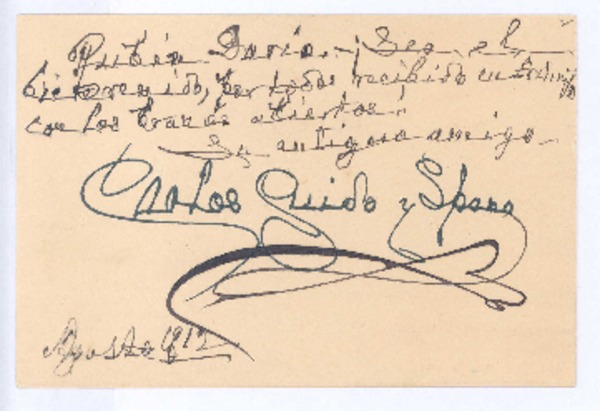 Rubén Darío. – Sea el
bienvenido, por todos recibido en triunfo
con los brazos abiertos.
Su antiguo amigo
Carlos Guido y Spano
Agosto 1912